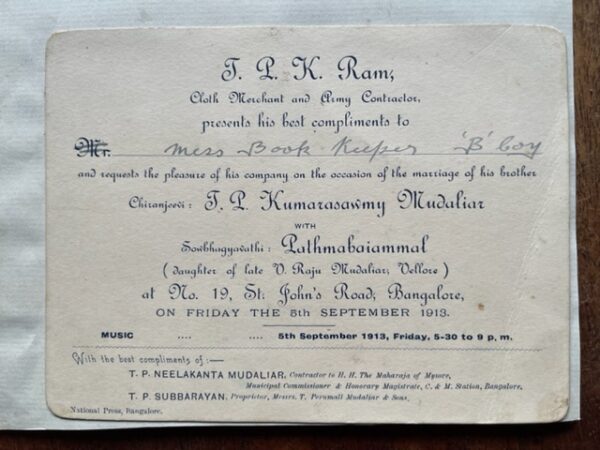 T. P. K. Ram,
Cloth Merchant and Army Contractor,
presents his best compliments to
Mr. Mess Book Keeper 'B' Coy
and requests the pleasure of his company on the occasion of the marriage of his brother
Chiranjeevi: T. P. Kumarasawmy Mudaliar
WITH
Sowbhagyavathi: Pathmabaiammal
(daughter of late V. Raju Mudaliar, Vellore)
at No. 19, St. John's Road, Bangalore,
ON FRIDAY THE 5th SEPTEMBER 1913.
MUSIC .... .... 5th September 1913, Friday, 5-30 to 9 p. m.
With the best compliments of :—
T. P. NEELAKANTA MUDALIAR, Contractor to H. H. The Maharaja of Mysore,
Municipal Commissioner & Honorary Magistrate, C. & M. Station, Bangalore,
T. P. SUBBARAYAN, Proprietor, Messrs. T. Perumall Mudaliar & Sons.
National Press, Bangalore.